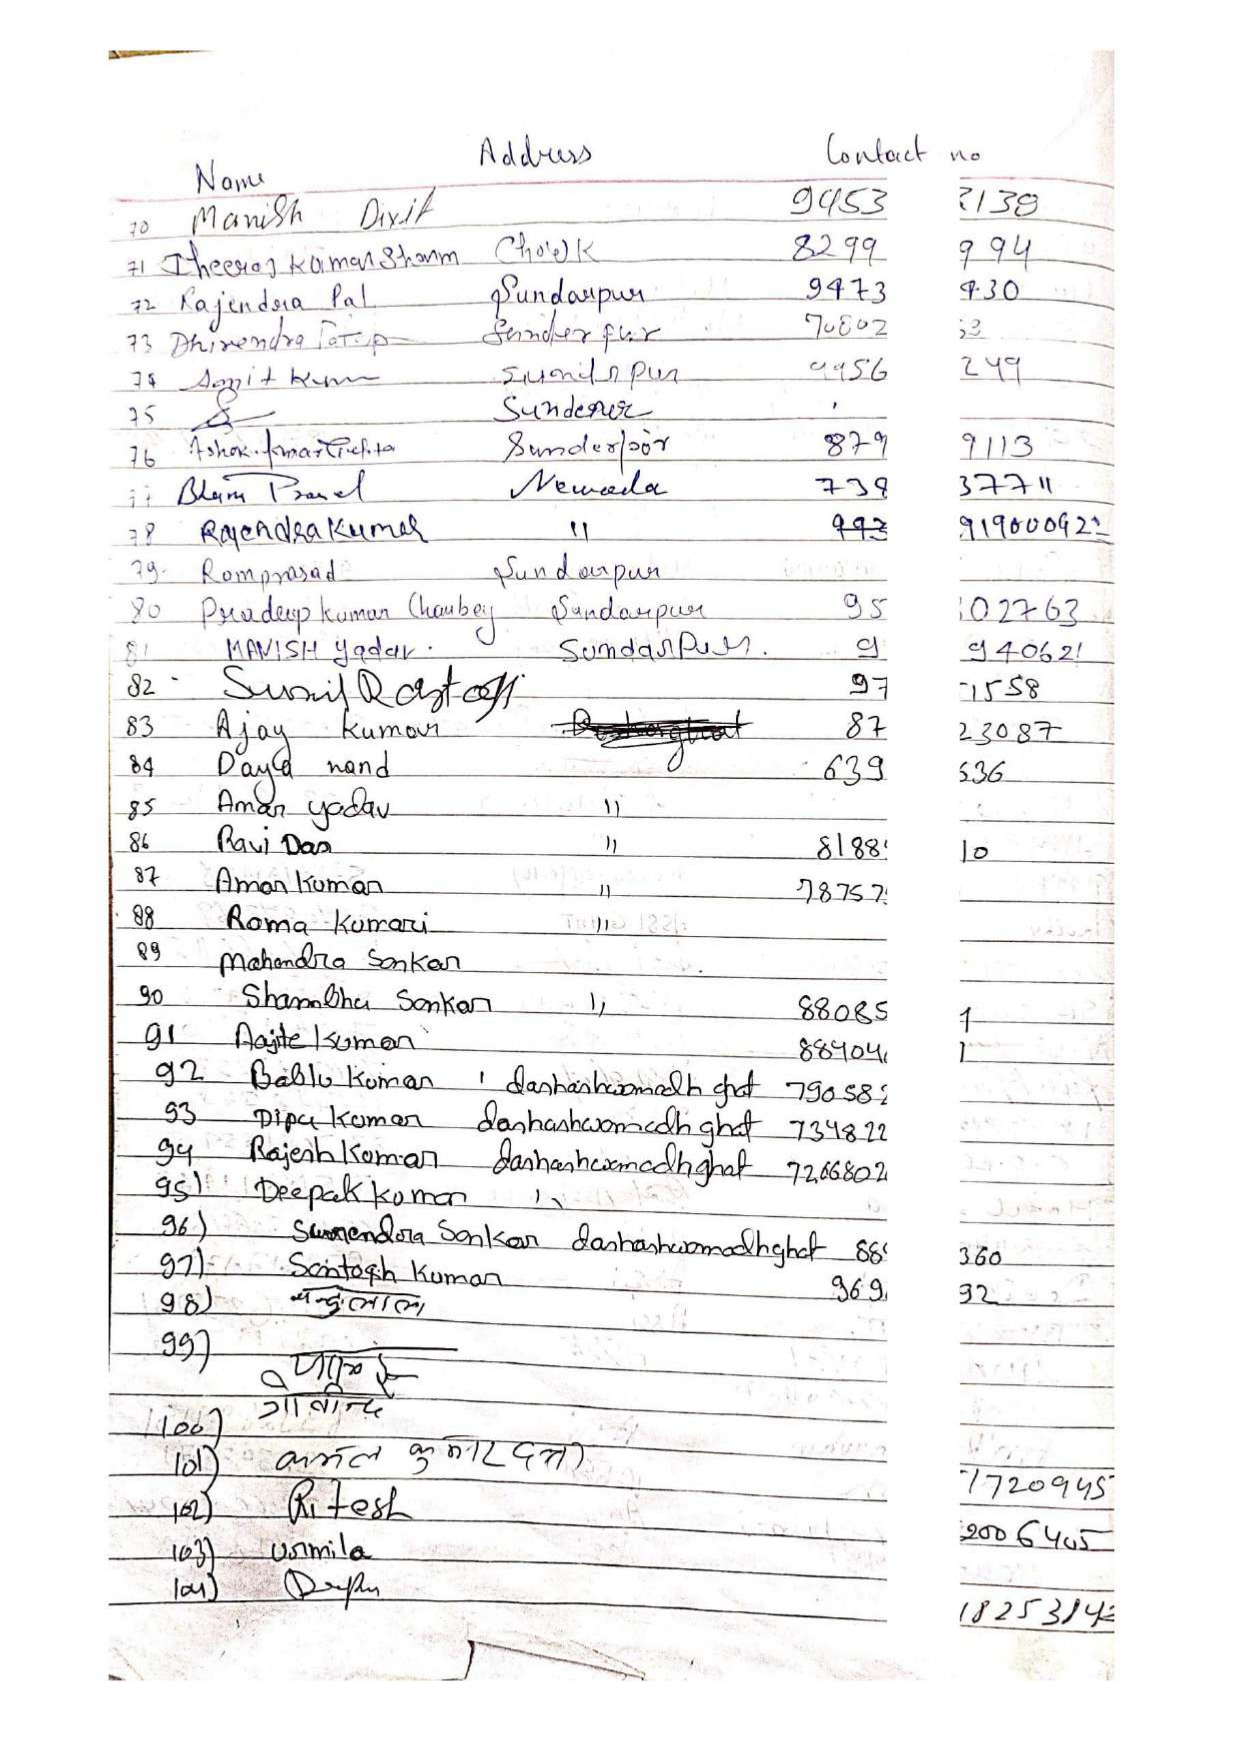 Name Address Contact no
70 Manish Dixit 9453 2138
71 Dheeraj Kumar Sharm Chowk 8299 994
72 Rajendra Pal Sundarpur 9473 430
73 Dhirendra Sunderpur 70802
74 Amit Kum Sundrpur 9956 249
75
76 Ashok Sunderpur 879 9113
77 Newada 738 37711
78 Rajendra Kumar " 993 9190009
79. Ramprasad Sundarpur
80 Pradeep Kumar Chaubey Sundarpur 95 02763
81 MANISH Yadav. Sundar Pur. 9 94062
82 Sunil Rastogi 97 1558
83 Ajay Kumar 87 23087
84 Daya nand 639 536
85 Aman yadav "
86 Ravi Das " 8188 10
87 Aman Kumar " 78757
88 Roma Kumari "
89 Mahendra Sonkar
90 Shambhu Sonkar " 88085 1
91 Aajite Kumar 88904 1
92 Bablu Kumar dashashwamedh ghat 79058
93 Dipu Kumar dashashwamedh ghat 734822
94 Rajesh Kumar dashashwamedh ghat 7266802
95) Deepak Kumar "
96) Surendra Sonkar dashashwamedh ghat 88 360
97) Santosh Kumar 969 92
98) चन्दुलाल
99)
गोविन्द
100)
101) कमल कुमार दत्ता
17720945
102) Ritesh
2006405
103) Urmila
104)
18253142